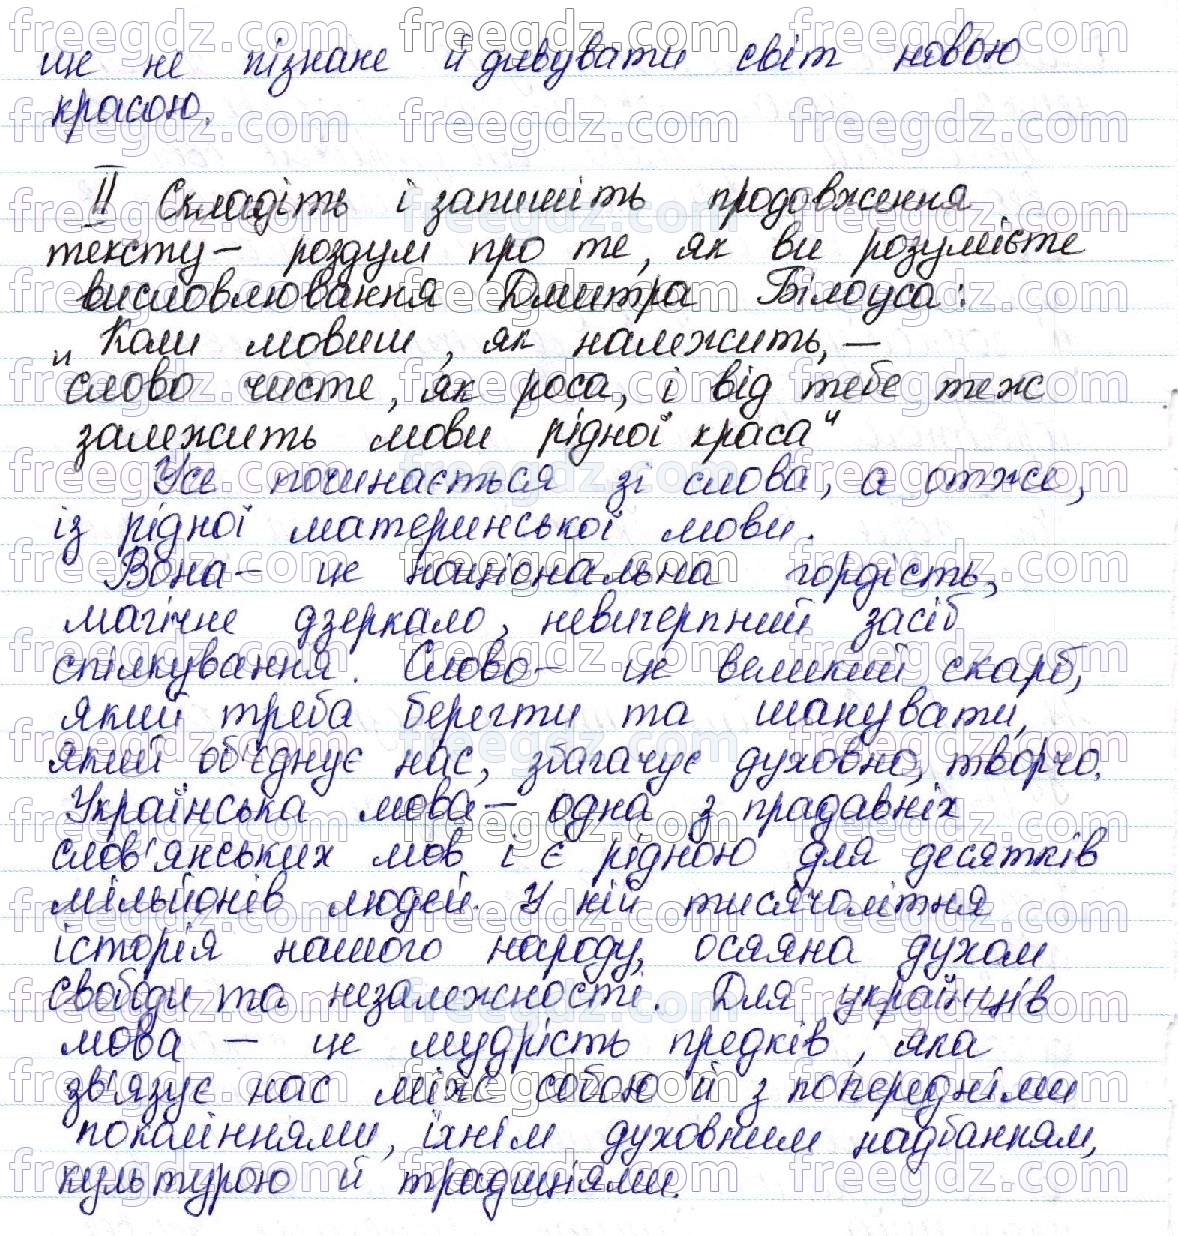 ще не пізнане й дивувати світ новою
красою.
II Складіть і запишіть продовження
тексту – роздум про те, як ви розумієте
висловлювання Дмитра Білоуса:
„Коли мовиш, як належить, –
слово чисте, як роса, і від тебе теж
залежить мови рідної краса"
Усе починається зі слова, а отже,
із рідної материнської мови.
Вона – це національна гордість,
магічне дзеркало, невичерпний засіб
спілкування. Слово – це великий скарб,
який треба берегти та шанувати,
який об'єднує нас, збагачує духовно, творчо.
Українська мова – одна з прадавніх
слов'янських мов і є рідною для десятків
мільйонів людей. У ній тисячолітня
історія нашого народу, осяяна духом
свободи та незалежності. Для українців
мова – це мудрість предків, яка
зв'язує нас між собою й з попередніми
поколіннями, їхнім духовним надбанням,
культурою й традиціями.
freegdz.com